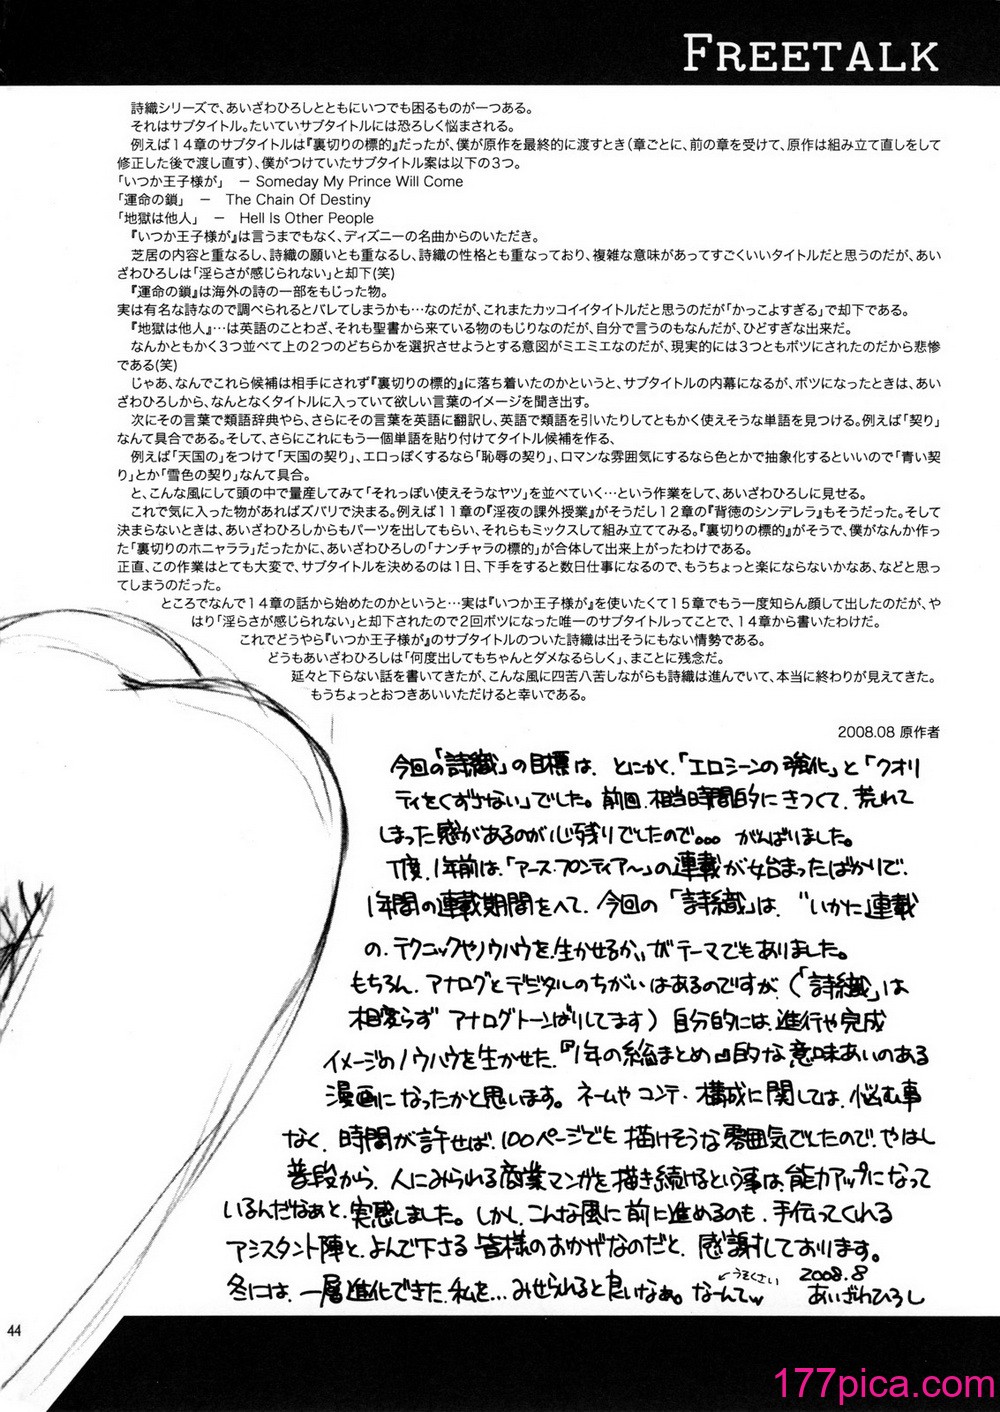 FREETALK
詩織シリーズで、あいざわひろしとともにいつでも困るものが一つある。
それはサブタイトル。たいていサブタイトルには恐ろしく悩まされる。
例えば14章のサブタイトルは『裏切りの標的』だったが、僕が原作を最終的に渡すとき(章ごとに、前の章を受けて、原作は組み立て直しをして
修正した後で渡し直す)、僕がつけていたサブタイトル案は以下の3つ。
「いつか王子様が」 － Someday My Prince Will Come
「運命の鎖」 － The Chain Of Destiny
「地獄は他人」 － Hell Is Other People
『いつか王子様が』は言うまでもなく、ディズニーの名曲からのいただき。
芝居の内容と重なるし、詩織の願いとも重なるし、詩織の性格とも重なっており、複雑な意味があってすごくいいタイトルだと思うのだが、あい
ざわひろしは「淫らさが感じられない」と却下(笑)
『運命の鎖』は海外の詩の一部をもじった物。
実は有名な詩なので調べられるとバレてしまうかも…なのだが、これまたカッコイイタイトルだと思うのだが「かっこよすぎる」で却下である。
『地獄は他人』…は英語のことわざ、それも聖書から来ている物のもじりなのだが、自分で言うのもなんだが、ひどすぎな出来だ。
なんかともかく3つ並べて上の2つのどちらかを選択させようとする意図がミエミエなのだが、現実的には3つともボツにされたのだから悲惨
である(笑)
じゃあ、なんでこれら候補は相手にされず『裏切りの標的』に落ち着いたのかというと、サブタイトルの内幕になるが、ボツになったときは、あい
ざわひろしから、なんとなくタイトルに入っていて欲しい言葉のイメージを聞き出す。
次にその言葉で類語辞典やら、さらにその言葉を英語に翻訳し、英語で類語を引いたりしてともかく使えそうな単語を見つける。例えば「契り」
なんて具合である。そして、さらにこれにもう一個単語を貼り付けてタイトル候補を作る、
例えば「天国の」をつけて「天国の契り」、エロっぽくするなら「恥辱の契り」、ロマンな雰囲気にするなら色とかで抽象化するといいので「青い契
り」とか「雪色の契り」なんて具合。
と、こんな風にして頭の中で量産してみて「それっぽい使えそうなヤツ」を並べていく…という作業をして、あいざわひろしに見せる。
これで気に入った物があればズバリで決まる。例えば11章の『淫夜の課外授業』がそうだし12章の『背徳のシンデレラ』もそうだった。そして
決まらないときは、あいざわひろしからもパーツを出してもらい、それらもミックスして組み立ててみる。『裏切りの標的』がそうで、僕がなんか作っ
た「裏切りのホニャララ」だったかに、あいざわひろしの「ナンチャラの標的」が合体して出来上がったわけである。
正直、この作業はとても大変で、サブタイトルを決めるのは1日、下手をすると数日仕事になるので、もうちょっと楽にならないかなあ、などと思っ
てしまうのだった。
ところでなんで14章の話から始めたのかというと…実は『いつか王子様が』を使いたくて15章でもう一度知らん顔して出したのだが、や
はり「淫らさが感じられない」と却下されたので2回ボツになった唯一のサブタイトルってことで、14章から書いたわけだ。
これでどうやら『いつか王子様が』のサブタイトルのついた詩織は出そうにもない情勢である。
どうもあいざわひろしは「何度出してもちゃんとダメなるらしく」、まことに残念だ。
延々と下らない話を書いてきたが、こんな風に四苦八苦しながらも詩織は進んでいて、本当に終わりが見えてきた。
もうちょっとおつきあいいただけると幸いである。
2008.08 原作者
今回の「詩織」の目標は、とにかく、「エロシーンの強化」と「クオリ
ティをくずさない」でした。前回、相当時間的にきつくて、荒れて
しまった感があるのが心残りでしたので。。。がんばりました。
丁度、1年前は、「アース・フロンティア〜」の連載が始まったばかりで、
1年間の連載期間をへて、今回の「詩織」は、"いかに連載
の、テクニックやノウハウを生かせるか"がテーマでもありました。
もちろん、アナログとデジタルのちがいはあるのですが、(「詩織」は
相変らず アナログトーンばりしてます) 自分的には、進行や完成
イメージのノウハウを生かせた、『1年の総まとめ』的な意味あいのある
漫画になったかと思います。ネームやコンテ、構成に関しては、悩む事
なく、時間が許せば、100ページでも描けそうな雰囲気でしたので、やはし
普段から、人にみられる商業マンガを描き続けるという事は、能力アップになって
いるんだなぁと、実感しました。しかし、こんな風に前に進めるのも、手伝ってくれる
アシスタント陣と、よんで下さる皆様のおかげなのだと、感謝しております。
冬には、一層進化できた、私を…みせられると良いなぁ。なーんてw
←うそくさい
2008.8
あいざわひろし
44
177pica.com